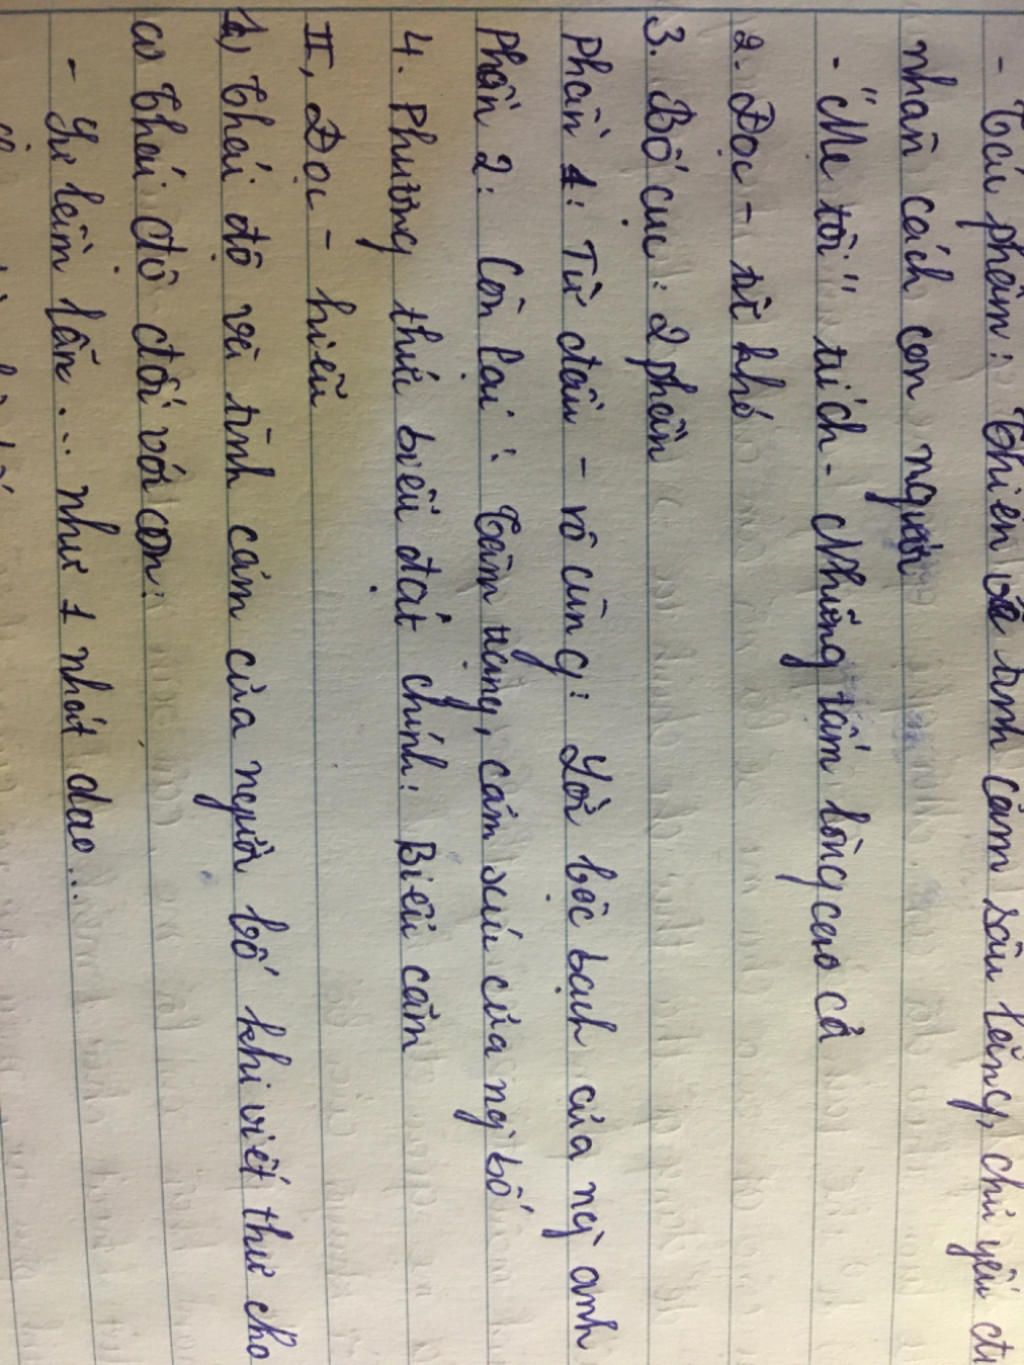 - Tác phẩm: Thiên về tình cảm sâu lắng, chủ yếu
nhân cách con người
- "Mẹ tôi" trích - Những tấm lòng cao cả
2. Đọc - từ khó
3. Bố cục: 2 phần
Phần 1: Từ đầu - vô cùng: Lời bộc bạch của ng` anh
Phần 2: Còn lại: Tâm trạng, cảm xúc của ng` bố
4. Phương thức biểu đạt chính: Biểu cảm
II, Đọc - hiểu
1) Thái độ và tình cảm của người bố khi viết thư cho
a) Thái độ đối với con:
- Sự lầm lẫn... như 1 nhát dao...